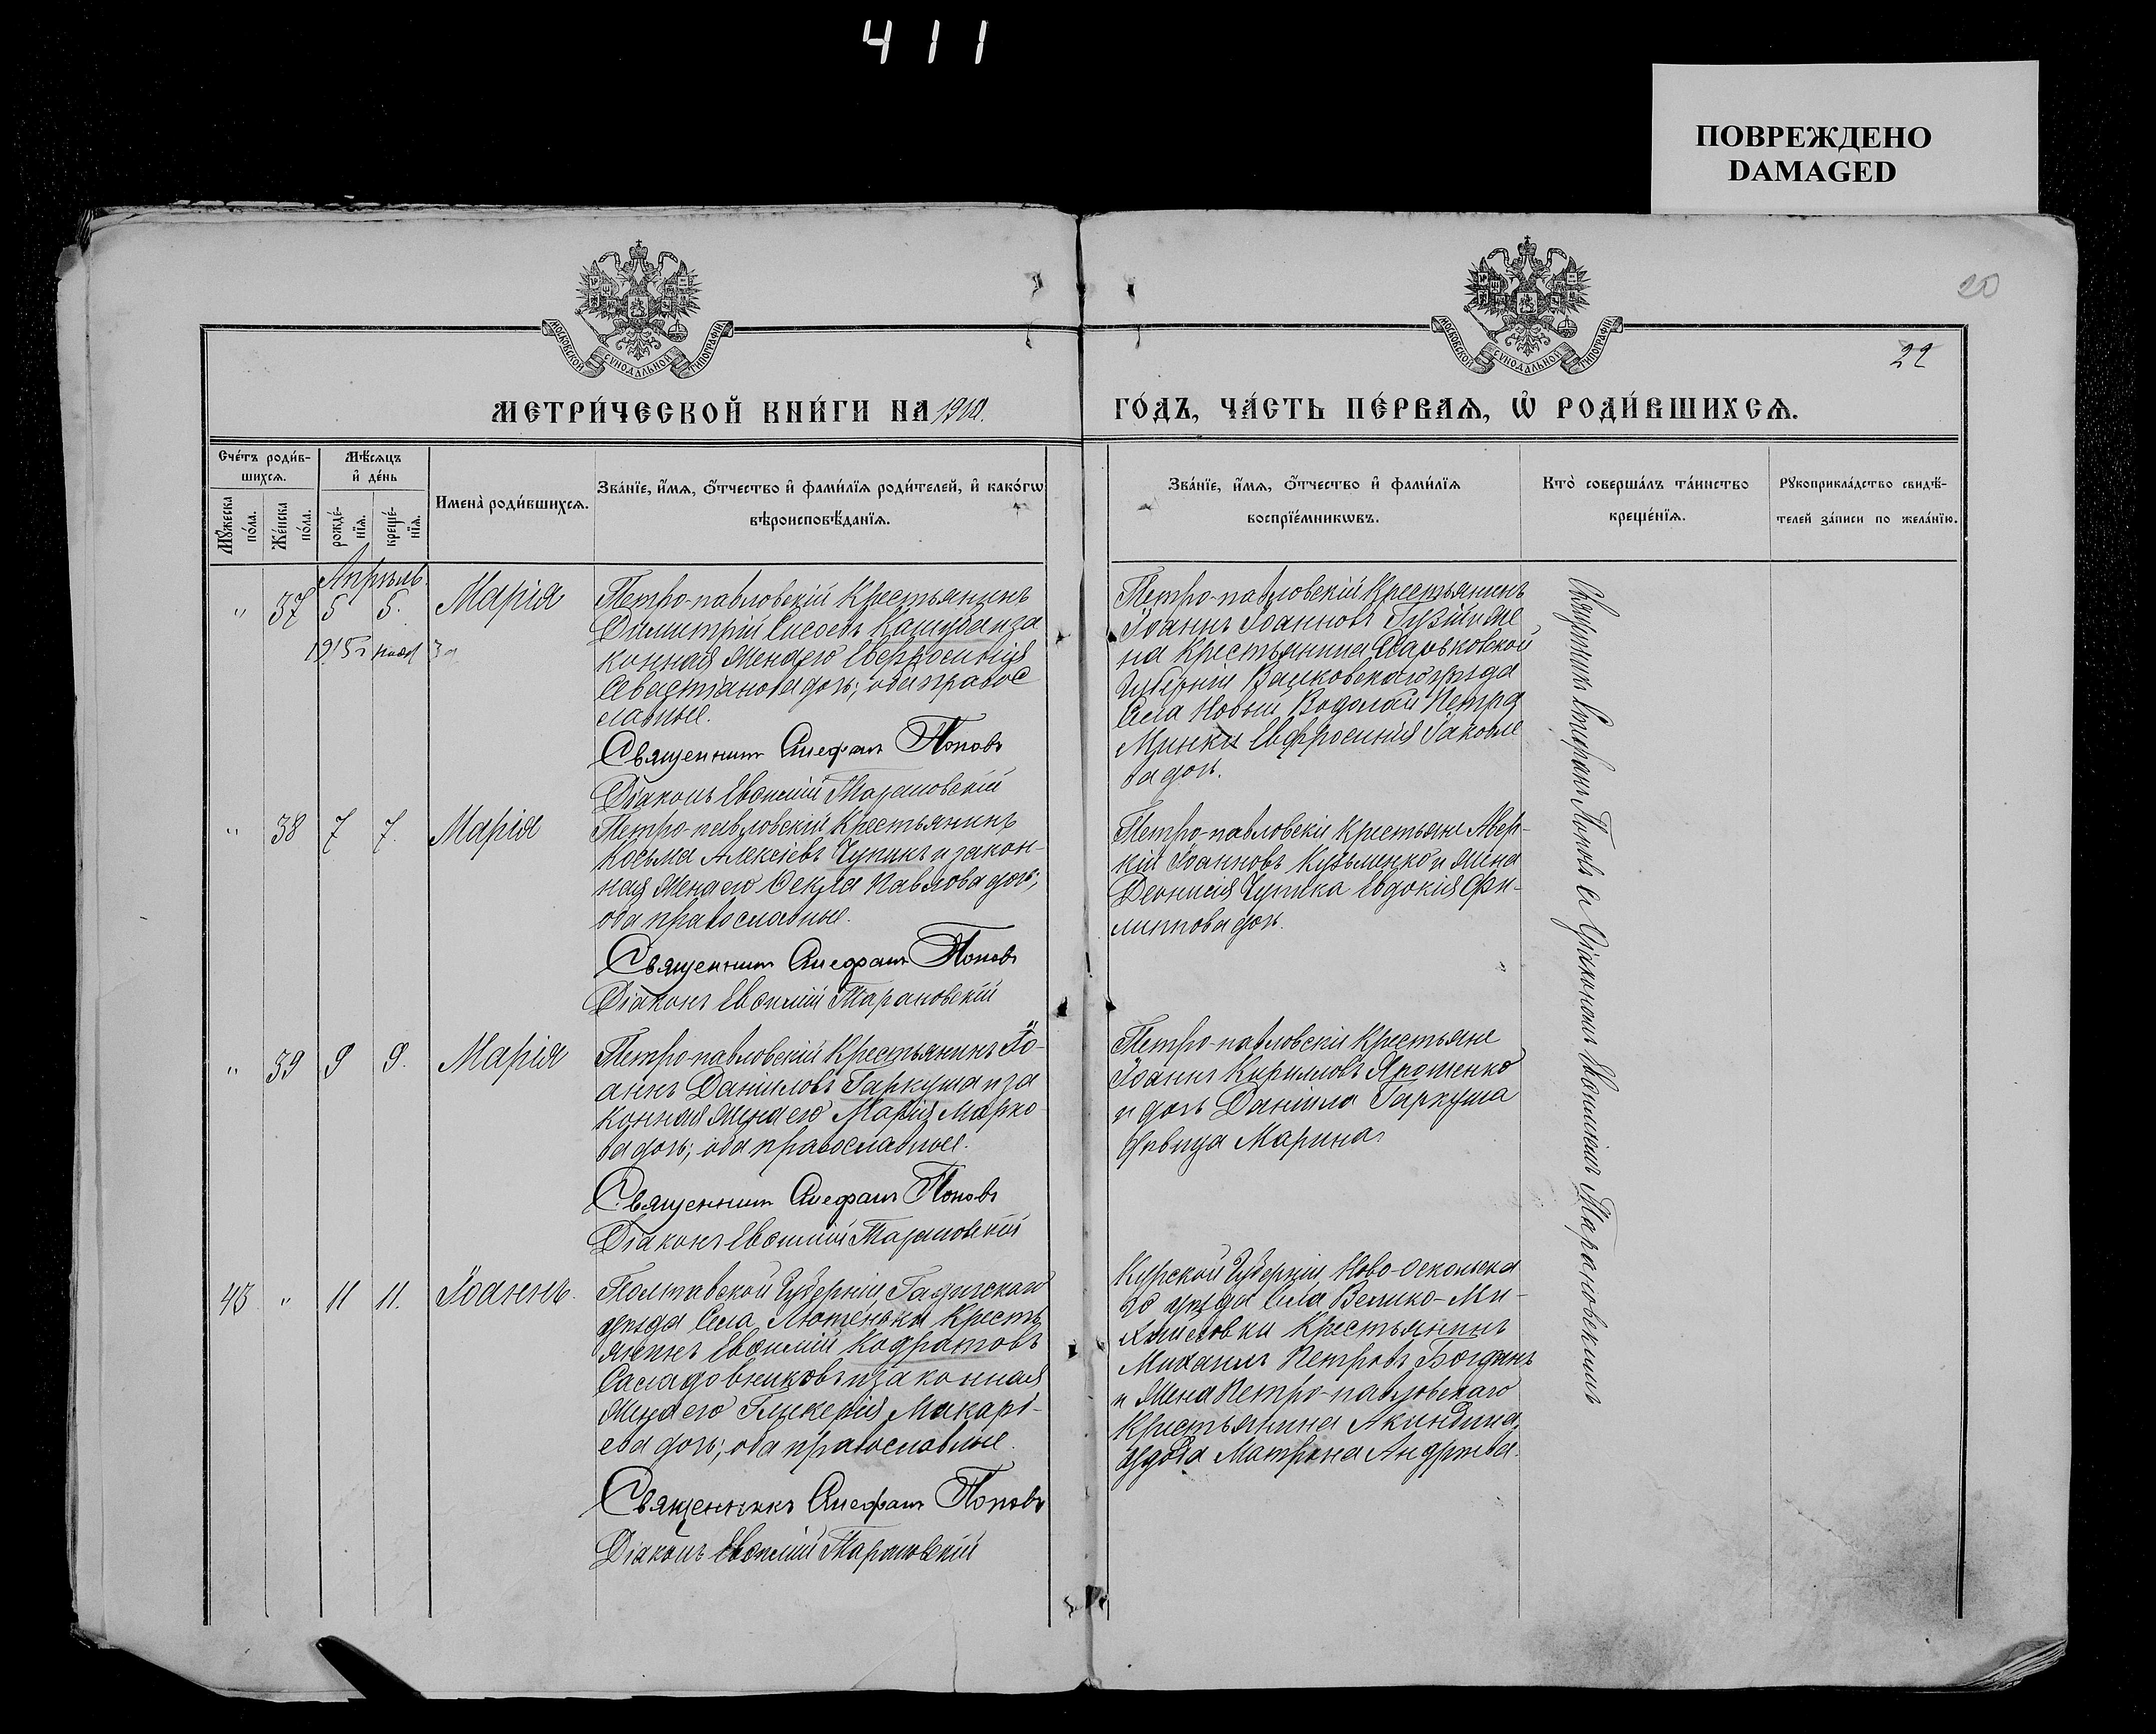 411
ПОВРЕЖДЕНО
DAMAGED
20
22
МОСКОВСКОЙ СѴНОДАЛЬНОЙ ТИПОГРАФІИ
МОСКОВСКОЙ СѴНОДАЛЬНОЙ ТИПОГРАФІИ
МЕТРИ́ЧЕСКОЙ КНИ́ГИ НА 1910.
ГО́ДЪ, ЧА́СТЬ ПЕ́РВАѦ, Ѡ҆ РОДИ́ВШИХСѦ.
Сче́тъ роди́в-
шихсѧ.
Мꙋ́жеска
по́ла.
Же́нска
по́ла.
Мѣ́сѧцъ
и҆ де́нь
рожде́-
нїѧ.
креще́-
нїѧ.
Имена̀ роди́вшихсѧ.
Зва́нїе, и҆́мѧ, ѻ҆́тчество и҆ фами́лїѧ роди́телей, и҆ како́гѡ
вѣроисповѣ́данїѧ.
Зва́нїе, и҆́мѧ, ѻ҆́тчество и҆ фами́лїѧ
воспрїе́мникѡвъ.
Кто̀ соверша́лъ та́инство
креще́нїѧ.
Рꙋкоприкла́дство свидѣ́-
телей за́писи по жела́нїю.
Апрѣль
" 37 5 5. Марія
Петро-павловскій Крестьянинъ
Димитрій Сысоевъ и за
конная жена его Евфросинія
Севастіанова дочь; оба правос
лавные.
Священникъ Попов
Діаконъ Евѳимій Тарановскій
Петро-павловскій Крестьянинъ
Іоаннъ Іоанновъ и же
на крестьянина Харьковской
Губерніи Валковскаго уѣзда
Села Новый Водолай Петра
Минки Евфросинія Іаковле
ва дочь.
" 38 7 7. Марія
Петро-павловскій Крестьянинъ
Косьма Алексіевъ Чупикъ и закон-
ная жена его Ѳекла Павлова дочь;
оба православные.
Священникъ Попов
Діаконъ Евѳимій Тарановскій
Петро-павловскіе Крестьяне Авер-
кій Іоанновъ Кузьменко и жена
Деонисія Чупика Евдокія Фи-
липпова дочь.
" 39 9 9. Марія
Петро-павловскій Крестьянинъ Іо-
аннъ Даніиловъ Гаркуша и за
конная жена его Марія Марко
ва дочь; оба православные.
Священникъ Попов
Діаконъ Евѳимій Тарановскій
Петро-павловскіе Крестьяне
Іоаннъ Кирилловъ Ярошенко
и дочь Даніила Гаркуша
дѣвица Марина
43 " 11 11. Іоаннъ.
Полтавской Губерніи Гадячскаго
уѣзда Села Лютеньки Кресть
янинъ Евѳимій Кодратовъ
и законная
жена его Гликерія Макарі-
ева дочь; оба православные.
Священникъ Попов
Діаконъ Евѳимій Тарановскій
Курской Губерніи Ново-Оскольска
го уѣзда Села Велико-Ми-
хайловки Крестьянинъ
Михаилъ Петровъ Богданъ
и жена Петро-павловскаго
Крестьянина Акиндина
Матрона Андреева.
Священникъ Поповъ съ Діакономъ Евѳиміемъ Тарановскимъ